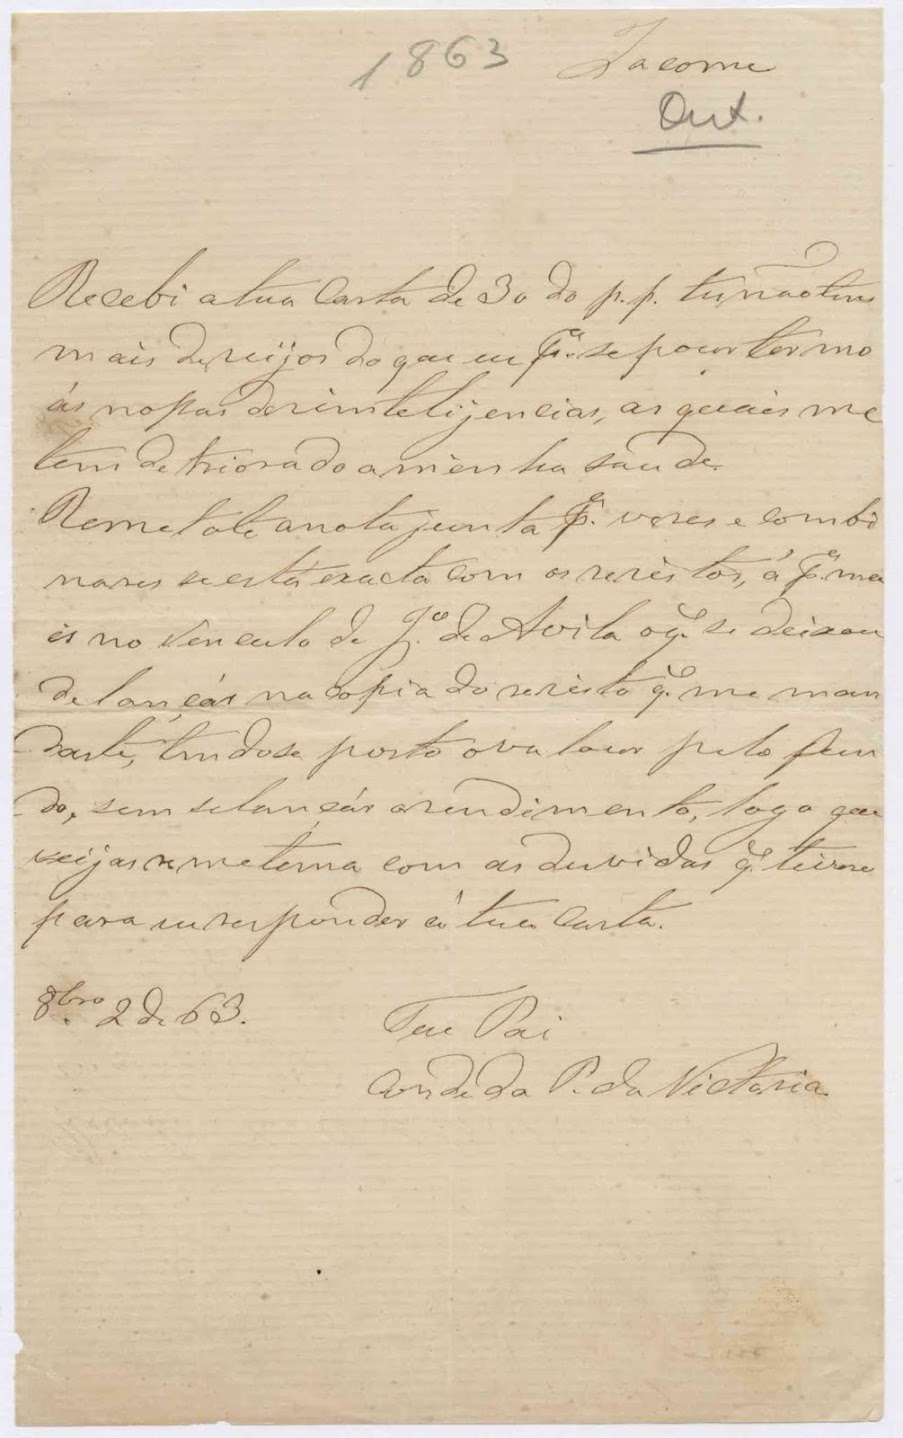 1863 Jacome
Out.
Recebi a tua Carta de 30 do p.p. tu, não tens
mais dezeijos do que eu pª. se pour termo
ás nossas dezintelijencias, as quais me
tem detriorado a minha saude.
Remetote a nota junta pª. veres e combi
nares se está exacta com os rezistos, á pª. mea
és no Venculo de Jº. de Avila o q̃ se deixou
de lançár na copia do rezisto q̃ me man
daste, tendose posto o valour pelo fun
do, sem se lançár o rendimento, logo que
veijas remetema com as duvidas q̃ tivere
para eu responder á tua Carta.
8bro. 2 de 63.
Teu Pai
Conde da P. da Victoria.